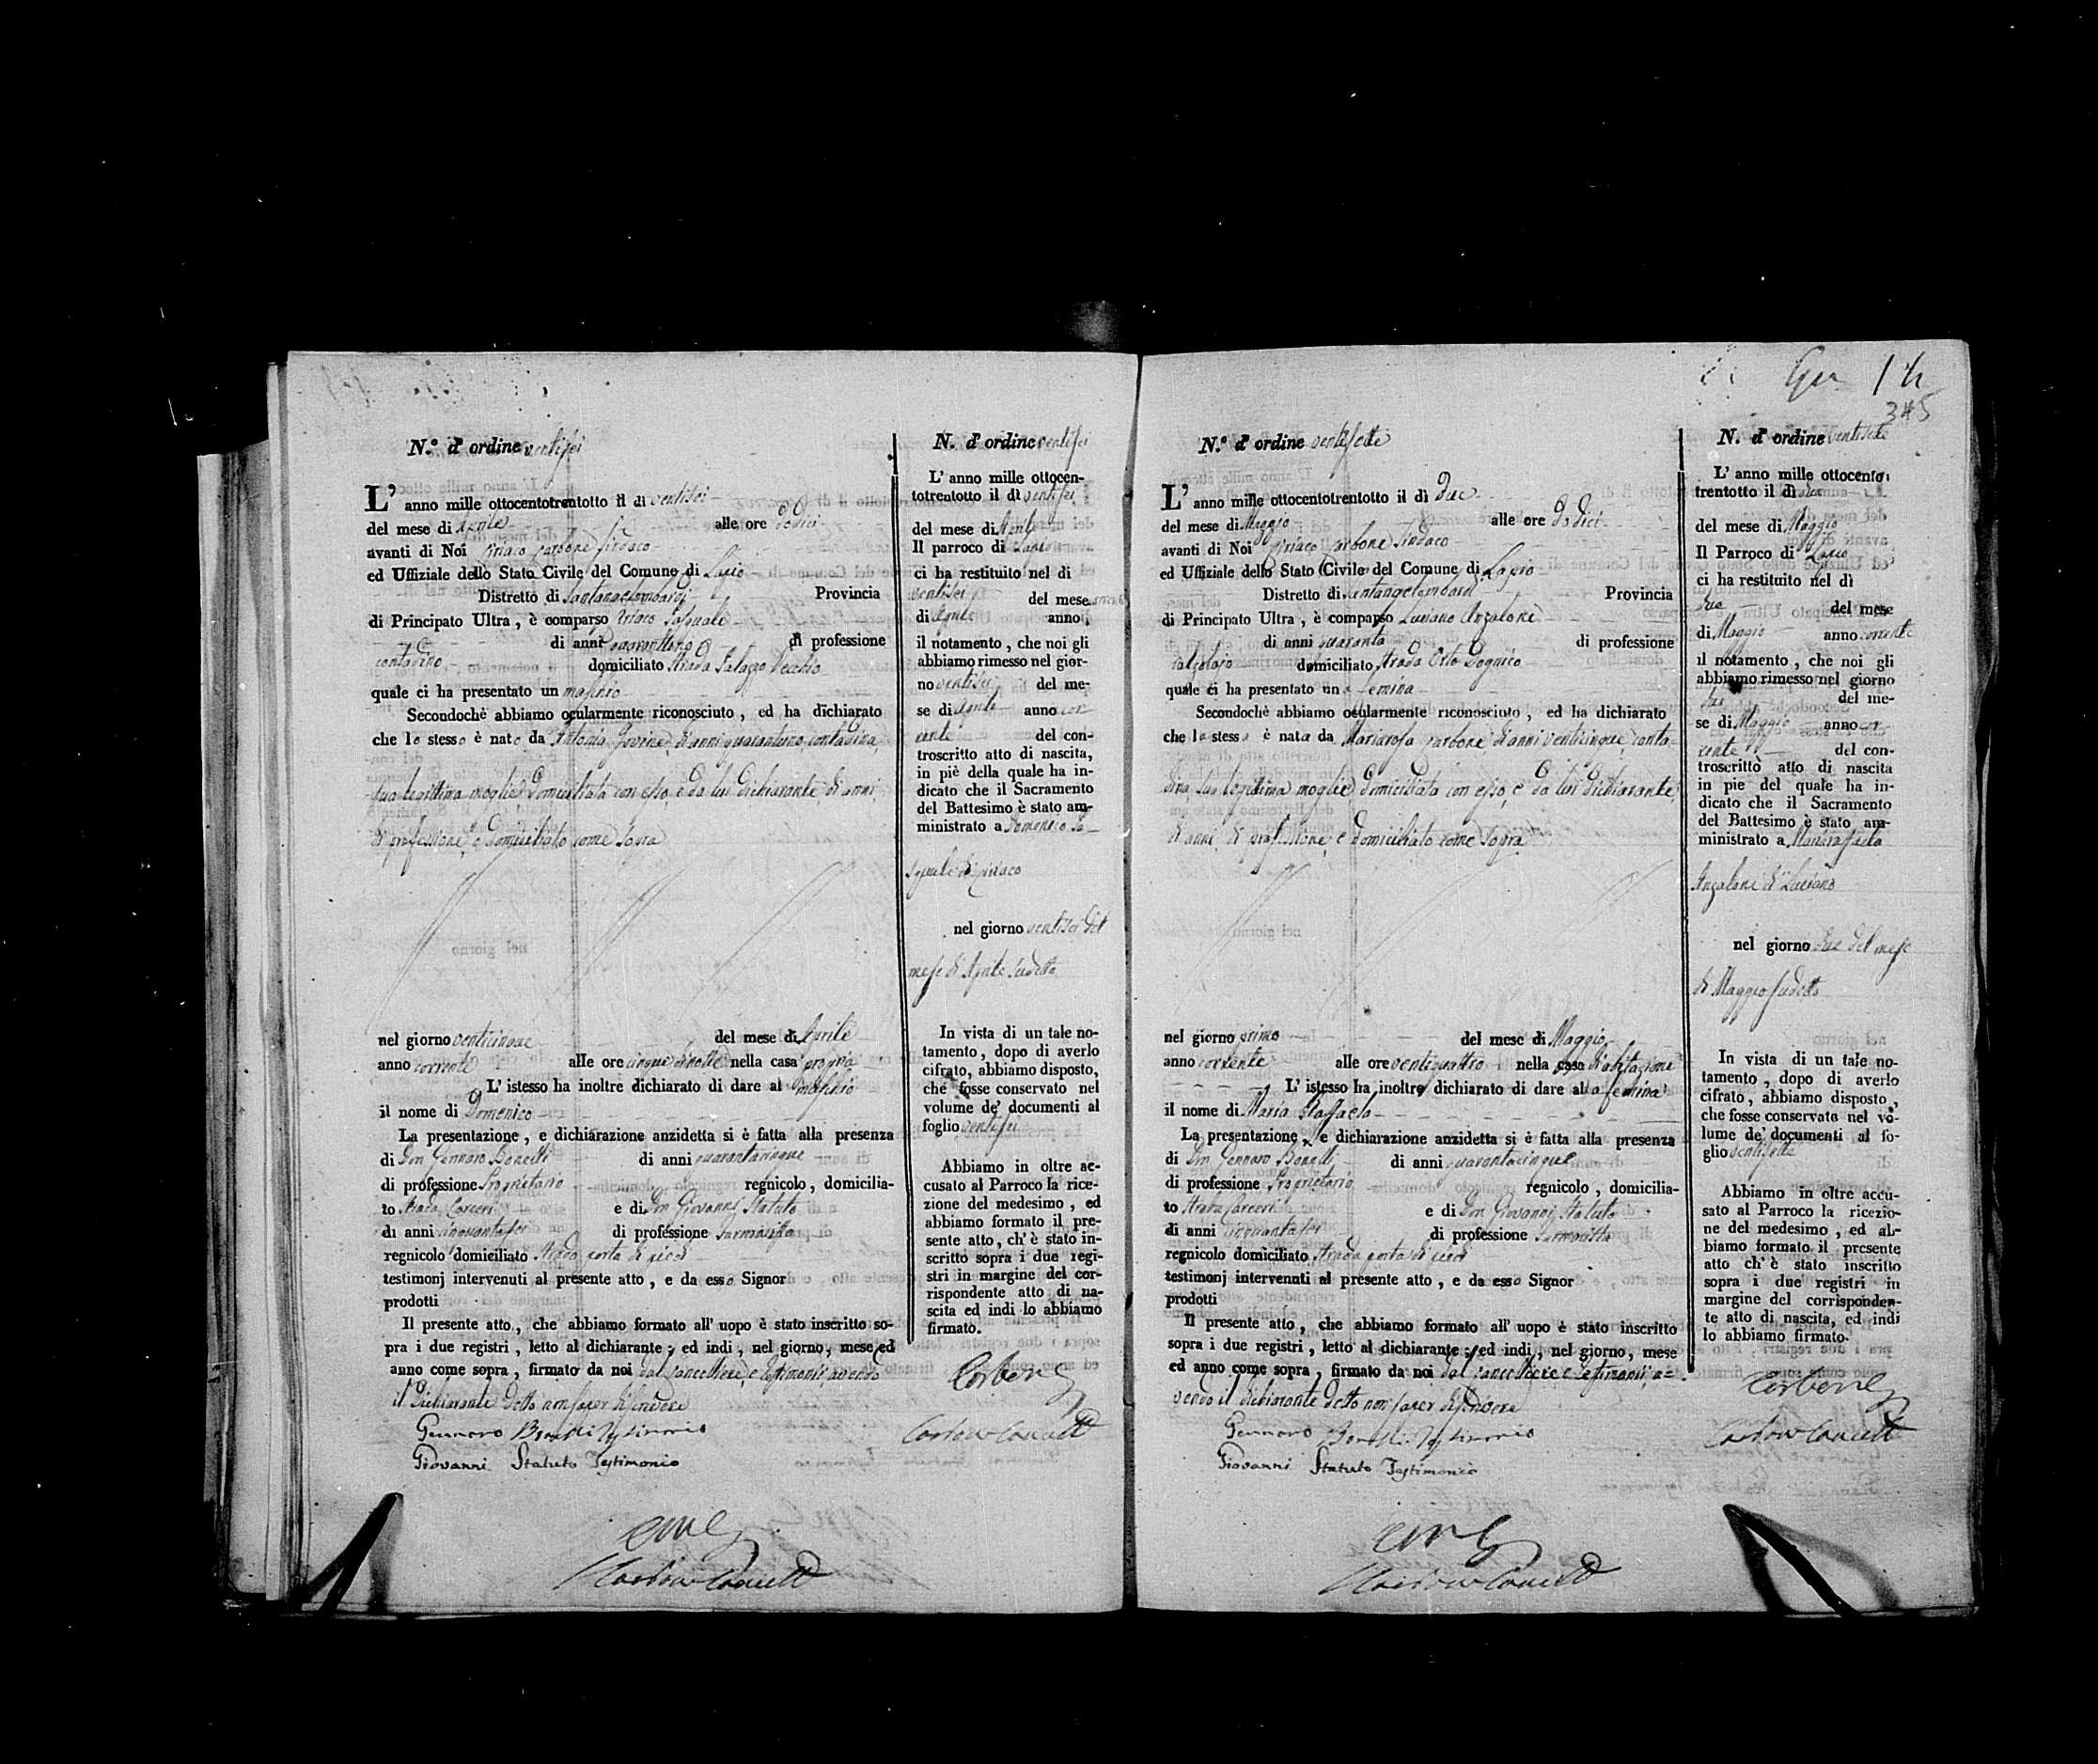 N.º d'ordine ventisei
L' anno mille ottocentotrentotto il di ventisei
del mese di Aprile alle ore dodici
avanti di Noi Ciriaco Carbone Sindaco
ed Uffiziale dello Stato Civile del Comune di Lapio
Distretto di Santangelombardi Provincia
di Principato Ultra, è comparso Ciriaco
di anni quarantuno di professione
contadino domiciliato Strada Palazzo Vecchio
quale ci ha presentato un maschio
Secondochè abbiamo ocularmente riconosciuto, ed ha dichiarato
che lo stesso è nato da Antonia Iovine, d'anni quarantuno contadina,
sua legittima moglie domiciliata con esso, e da lui dichiarante di anni,
di professione, e domiciliato come sopra
nel giorno venticinque del mese di Aprile
anno corrente alle ore cinque di notte nella casa propria
L' istesso ha inoltre dichiarato di dare al maschio
il nome di Domenico
La presentazione, e dichiarazione anzidetta si è fatta alla presenza
di Don Gennaro Bonelli di anni quarantacinque
di professione Proprietario regnicolo, domicilia-
to Strada Carceri e di Don Giovanni Statuto
di anni cinquantasei di professione Farmacista
regnicolo domiciliato Strada porta di
testimonj intervenuti al presente atto, e da esso Signor
prodotti
Il presente atto, che abbiamo formato all' uopo è stato inscritto so-
pra i due registri, letto al dichiarante; ed indi, nel giorno, mese ed
anno come sopra, firmato da noi dal Cancelliere, e testimonii, avendo
il dichiarante detto non saper scrivere
Gennaro Bonelli Testimonio
Giovanni Statuto Testimonio
N. d' ordine ventisei
L' anno mille ottocen-
totrentotto il dì ventisei
del mese di Aprile
Il parroco di Lapio
ci ha restituito nel di
ventisei del mese
di Aprile anno corrente
il notamento, che noi gli
abbiamo rimesso nel gior-
no ventisei del me-
se di Aprile anno cor-
rente del con-
troscritto atto di nascita,
in piè della quale ha in-
dicato che il Sacramento
del Battesimo è stato am-
ministrato a Domenico
di Ciriaco
nel giorno ventisei del
mese di Aprile sudetto
In vista di un tale no-
tamento, dopo di averlo
cifrato, abbiamo disposto,
che fosse conservato nel
volume de' documenti al
foglio ventisei
Abbiamo in oltre ac-
cusato al Parroco la rice-
zione del medesimo, ed
abbiamo formato il pre-
sente atto, ch' è stato in-
scritto sopra i due regi-
stri in margine del cor-
rispondente atto di na-
scita ed indi lo abbiamo
firmato.
Carbone
14
345
N.º d' ordine ventisette
L' anno mille ottocentotrentotto il dì due
del mese di Maggio alle ore dodici
avanti di Noi Ciriaco Carbone Sindaco
ed Uffiziale dello Stato Civile del Comune di Lapio
Distretto di Santangelombardi Provincia
di Principato Ultra, è comparso Luciano Anzalone
di anni quaranta di professione
calzolajo domiciliato Strada Orto Dognico
quale ci ha presentato una femina
Secondochè abbiamo ocularmente riconosciuto, ed ha dichiarato
che la stessa è nata da Mariarosa Carbone d'anni venticinque, conta-
dina, sua legittima moglie domiciliata con esso, e da lui dichiarante,
di anni, di professione, e domiciliato come sopra
nel giorno primo del mese di Maggio
anno corrente alle ore ventiquattro nella casa d'abitazione
L' istesso ha inoltre dichiarato di dare alla femina
il nome di Maria Raffaela
La presentazione, e dichiarazione anzidetta si è fatta alla presenza
di Don Gennaro Bonelli di anni quarantacinque
di professione Proprietario regnicolo, domicilia-
to Strada Carceri e di Don Giovanni Statuto
di anni cinquantasei di professione Farmacista
regnicolo domiciliato Strada porta di
testimonj intervenuti al presente atto, e da esso Signor
prodotti
Il presente atto, che abbiamo formato all' uopo è stato inscritto
sopra i due registri, letto al dichiarante; ed indi, nel giorno, mese
ed anno come sopra, firmato da noi dal Cancelliere e testimonii, a=
vendo il dichiarante detto non saper scrivere
Gennaro Bonelli Testimonio
Giovanni Statuto Testimonio
N. d' ordine ventisette
L' anno mille ottocento
trentotto il dì due
del mese di Maggio
Il Parroco di Lapio
ci ha restituito nel dì
due del mese
di Maggio anno corrente
il notamento, che noi gli
abbiamo rimesso nel giorno
due del me-
se di Maggio anno cor-
rente del con-
troscritto atto di nascita
in pie del quale ha in-
dicato che il Sacramento
del Battesimo è stato am-
ministrato a Mariaraffaela
Anzalone di Luciano
nel giorno due del mese
di Maggio sudetto
In vista di un tale no-
tamento, dopo di averlo
cifrato, abbiamo disposto,
che fosse conservato nel vo-
lume de' documenti al fo-
glio ventisette
Abbiamo in oltre accu-
sato al Parroco la ricezio-
ne del medesimo, ed ab-
biamo formato il presente
atto ch' è stato inscritto
sopra i due registri in
margine del corrisponden-
te atto di nascita, ed indi
lo abbiamo firmato.
Carbone